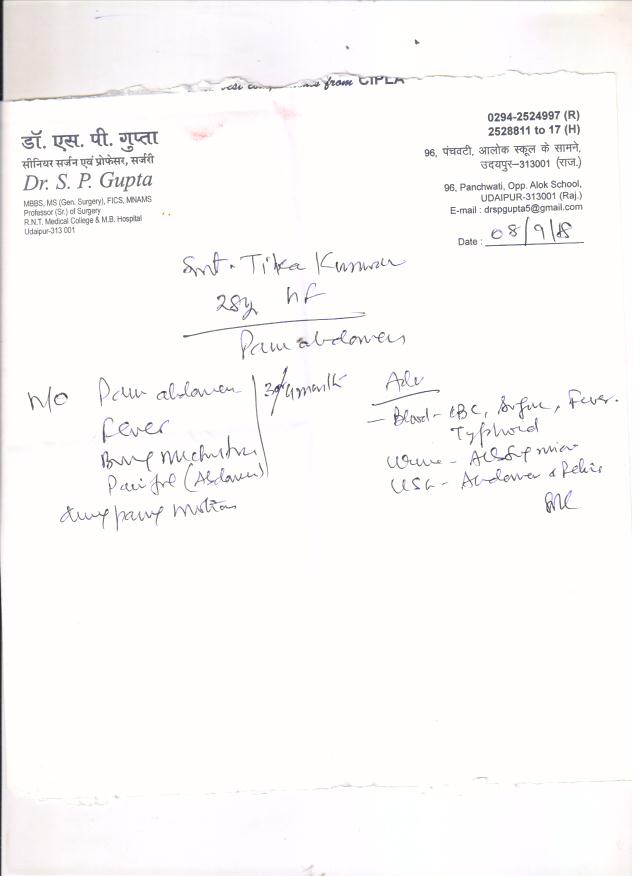 from CIPLA
डॉ. एस. पी. गुप्ता
सीनियर सर्जन एवं प्रोफेसर, सर्जरी
Dr. S. P. Gupta
MBBS, MS (Gen. Surgery), FICS, MNAMS
Professor (Sr.) of Surgery
R.N.T. Medical College & M.B. Hospital
Udaipur-313 001
0294-2524997 (R)
2528811 to 17 (H)
96, पंचवटी, आलोक स्कूल के सामने,
उदयपुर–313001 (राज.)
96, Panchwati, Opp. Alok School,
UDAIPUR-313001 (Raj.)
E-mail : drspgupta5@gmail.com
Date : 08/9/18
Smt. Tika Kunwar
28y hf
Pain abdomen
H/O Pain abdomen
Fever
Burning Micturition
Pain (Abdomen)
during passing motion
Adv
– Blood - CBC, Sugar, Fever.
Typhoid
Urine - micro
USG - Abdomen & Pelvis